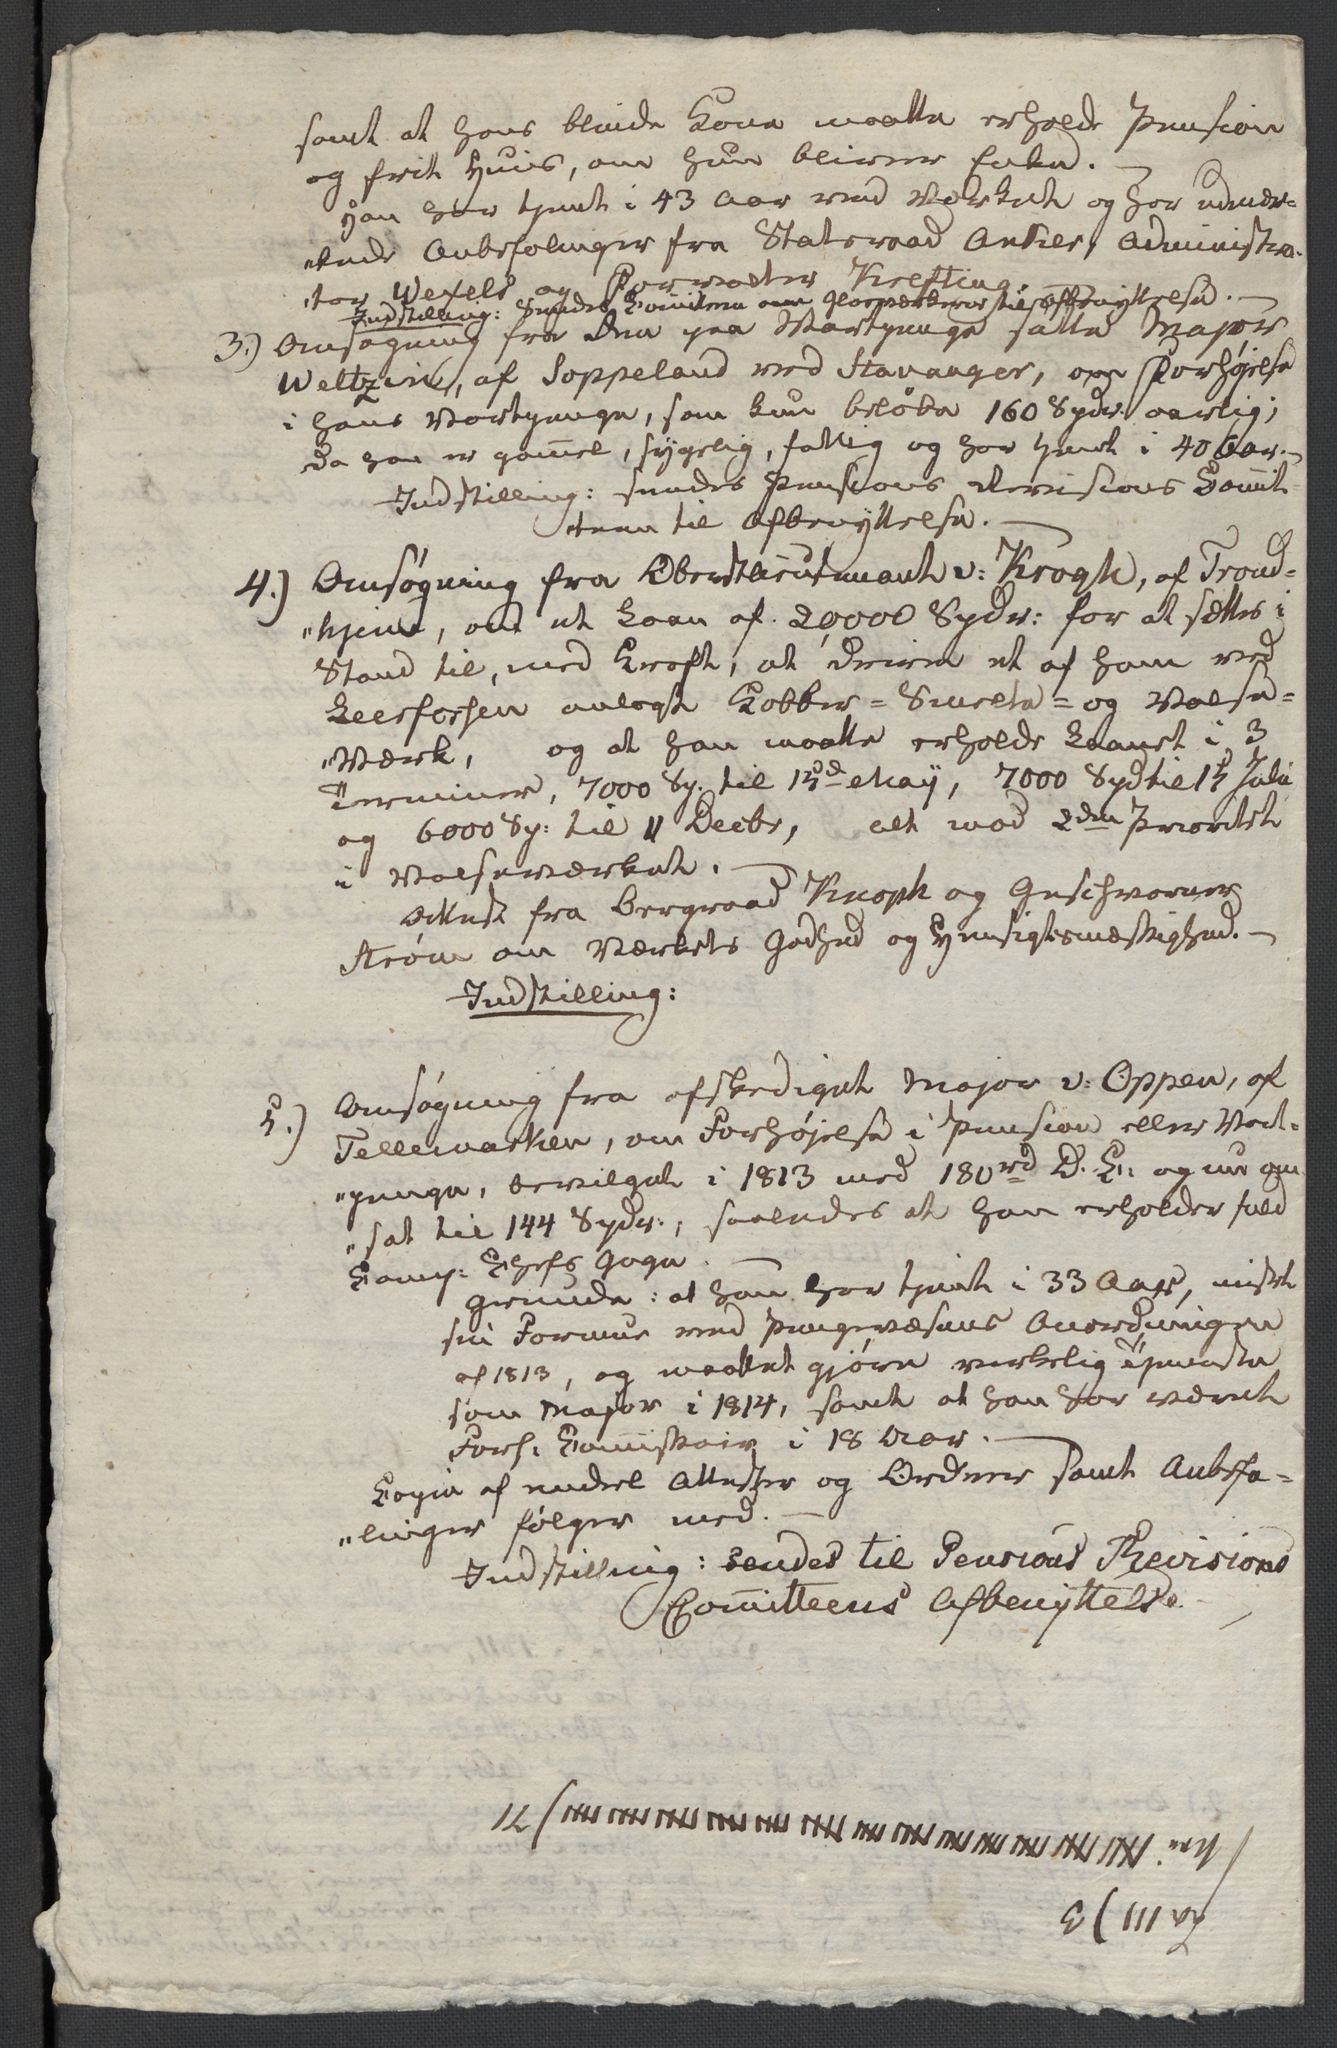 samt at hans blinde Kone maatte erholde Pension
og frit Huus, om hun bliver Enke.
Han har tjent i 43 Aar ved Værket og har udmær-
"kede Anbefalinger fra Statsraad Anker, Administra-
"tor Wexels og Forvalter Krefting.
Indstilling: sendes Comiteen om Glasværkerne til Afbenyttelse.
3.) Ansøgning fra den paa Vartpenge satte Major
Weltzin, af Soppeland ved Stavanger, om Forhøjelse
i hans Vartpenge, som kun beløbe 160 Spdr. aarlig;
da han er gam̅el, sygelig, fattig og har tjent i 40 Aar.
Indstilling: sendes Pensions Revisions Com̅it-
teen til Afbenyttelse.
4.) Ansøgning fra Oberstlieutenant v: Krogh, af Trond-
"hjem, om et Laan af 20000 Spdr: for at sættes i
Stand til, med Kraft, at drive et af ham ved
Leerfossen anlagt Kobber=Smelte= og Valse-
"Værk, og at han maatte erholde Laanet i 3
Terminer, 7000 Sp: til 15de May, 7000 Spd til 15 Julii
og 6000 Sp: til 11 Decbr, alt mod 2den Prioritet
i Valseværket.
Attest fra Bergraad Knoph og Geschworner
Strøm om Værkets Godhed og Hensigtsmæssighed.
Indstilling:
5.) Ansøgning fra afskediget Major v: Oppen, af
Tellemarken, om Forhøjelse i Pension eller Vart-
"penge, bevilget i 1813 med 180 rd D. C: og nu om
"sat til 144 Spdr:, saaledes at han erholder fuld
Comp: Chefs Gage.
Grunde: at han har tjent i 33 Aar, mistet
sin Formue ved Pengevæsens Anordningen
af 1813, og maattet gjøre virkelig Tjeneste
som Major i 1814, samt at han har været
Forl: Com̅issair i 18 Aar.
Copie af endeel Attester og Ordrer samt Anbefa-
"linger følger med.
Indstilling: sendes til Pensions Revisions
Com̅itteens Afbenyttelse.
71
III ) 3